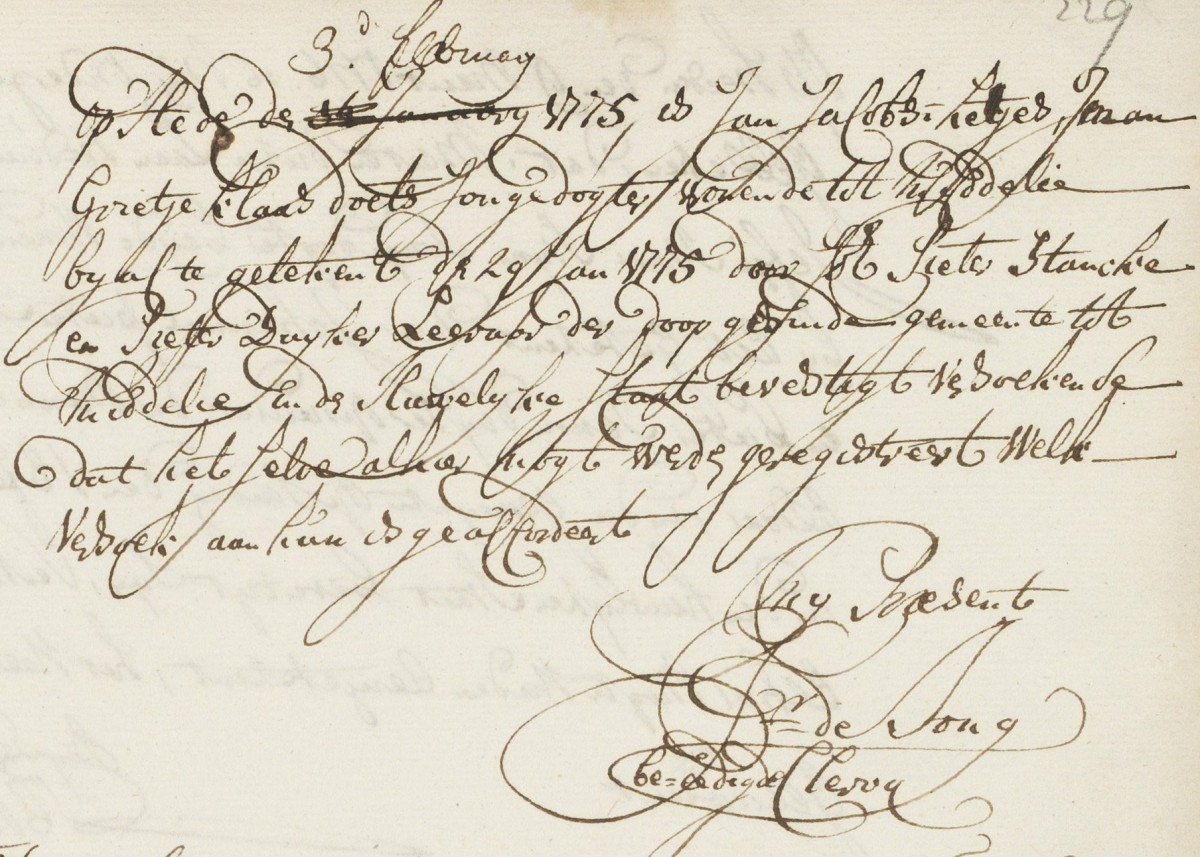 229
3d. February
op Hede de 14 January 1775, is Jan Jacobs=Ketjes, Jm an
Grietje Klaas doets Jongedogter, Wonende tot Middelie
by acte getekent de 29 Jan 1775 door Pieter Stancke
en Pieter Duyker Leeraar der doop gesinde gemeente tot
Middelie In de Huwelyke Staat bevestigt Versoekende
dat het selve alhier mogt werde geregistreert Welk
Versoek aan hun is geaccordeert
My Present
de Jong
be=eedigde Clercq